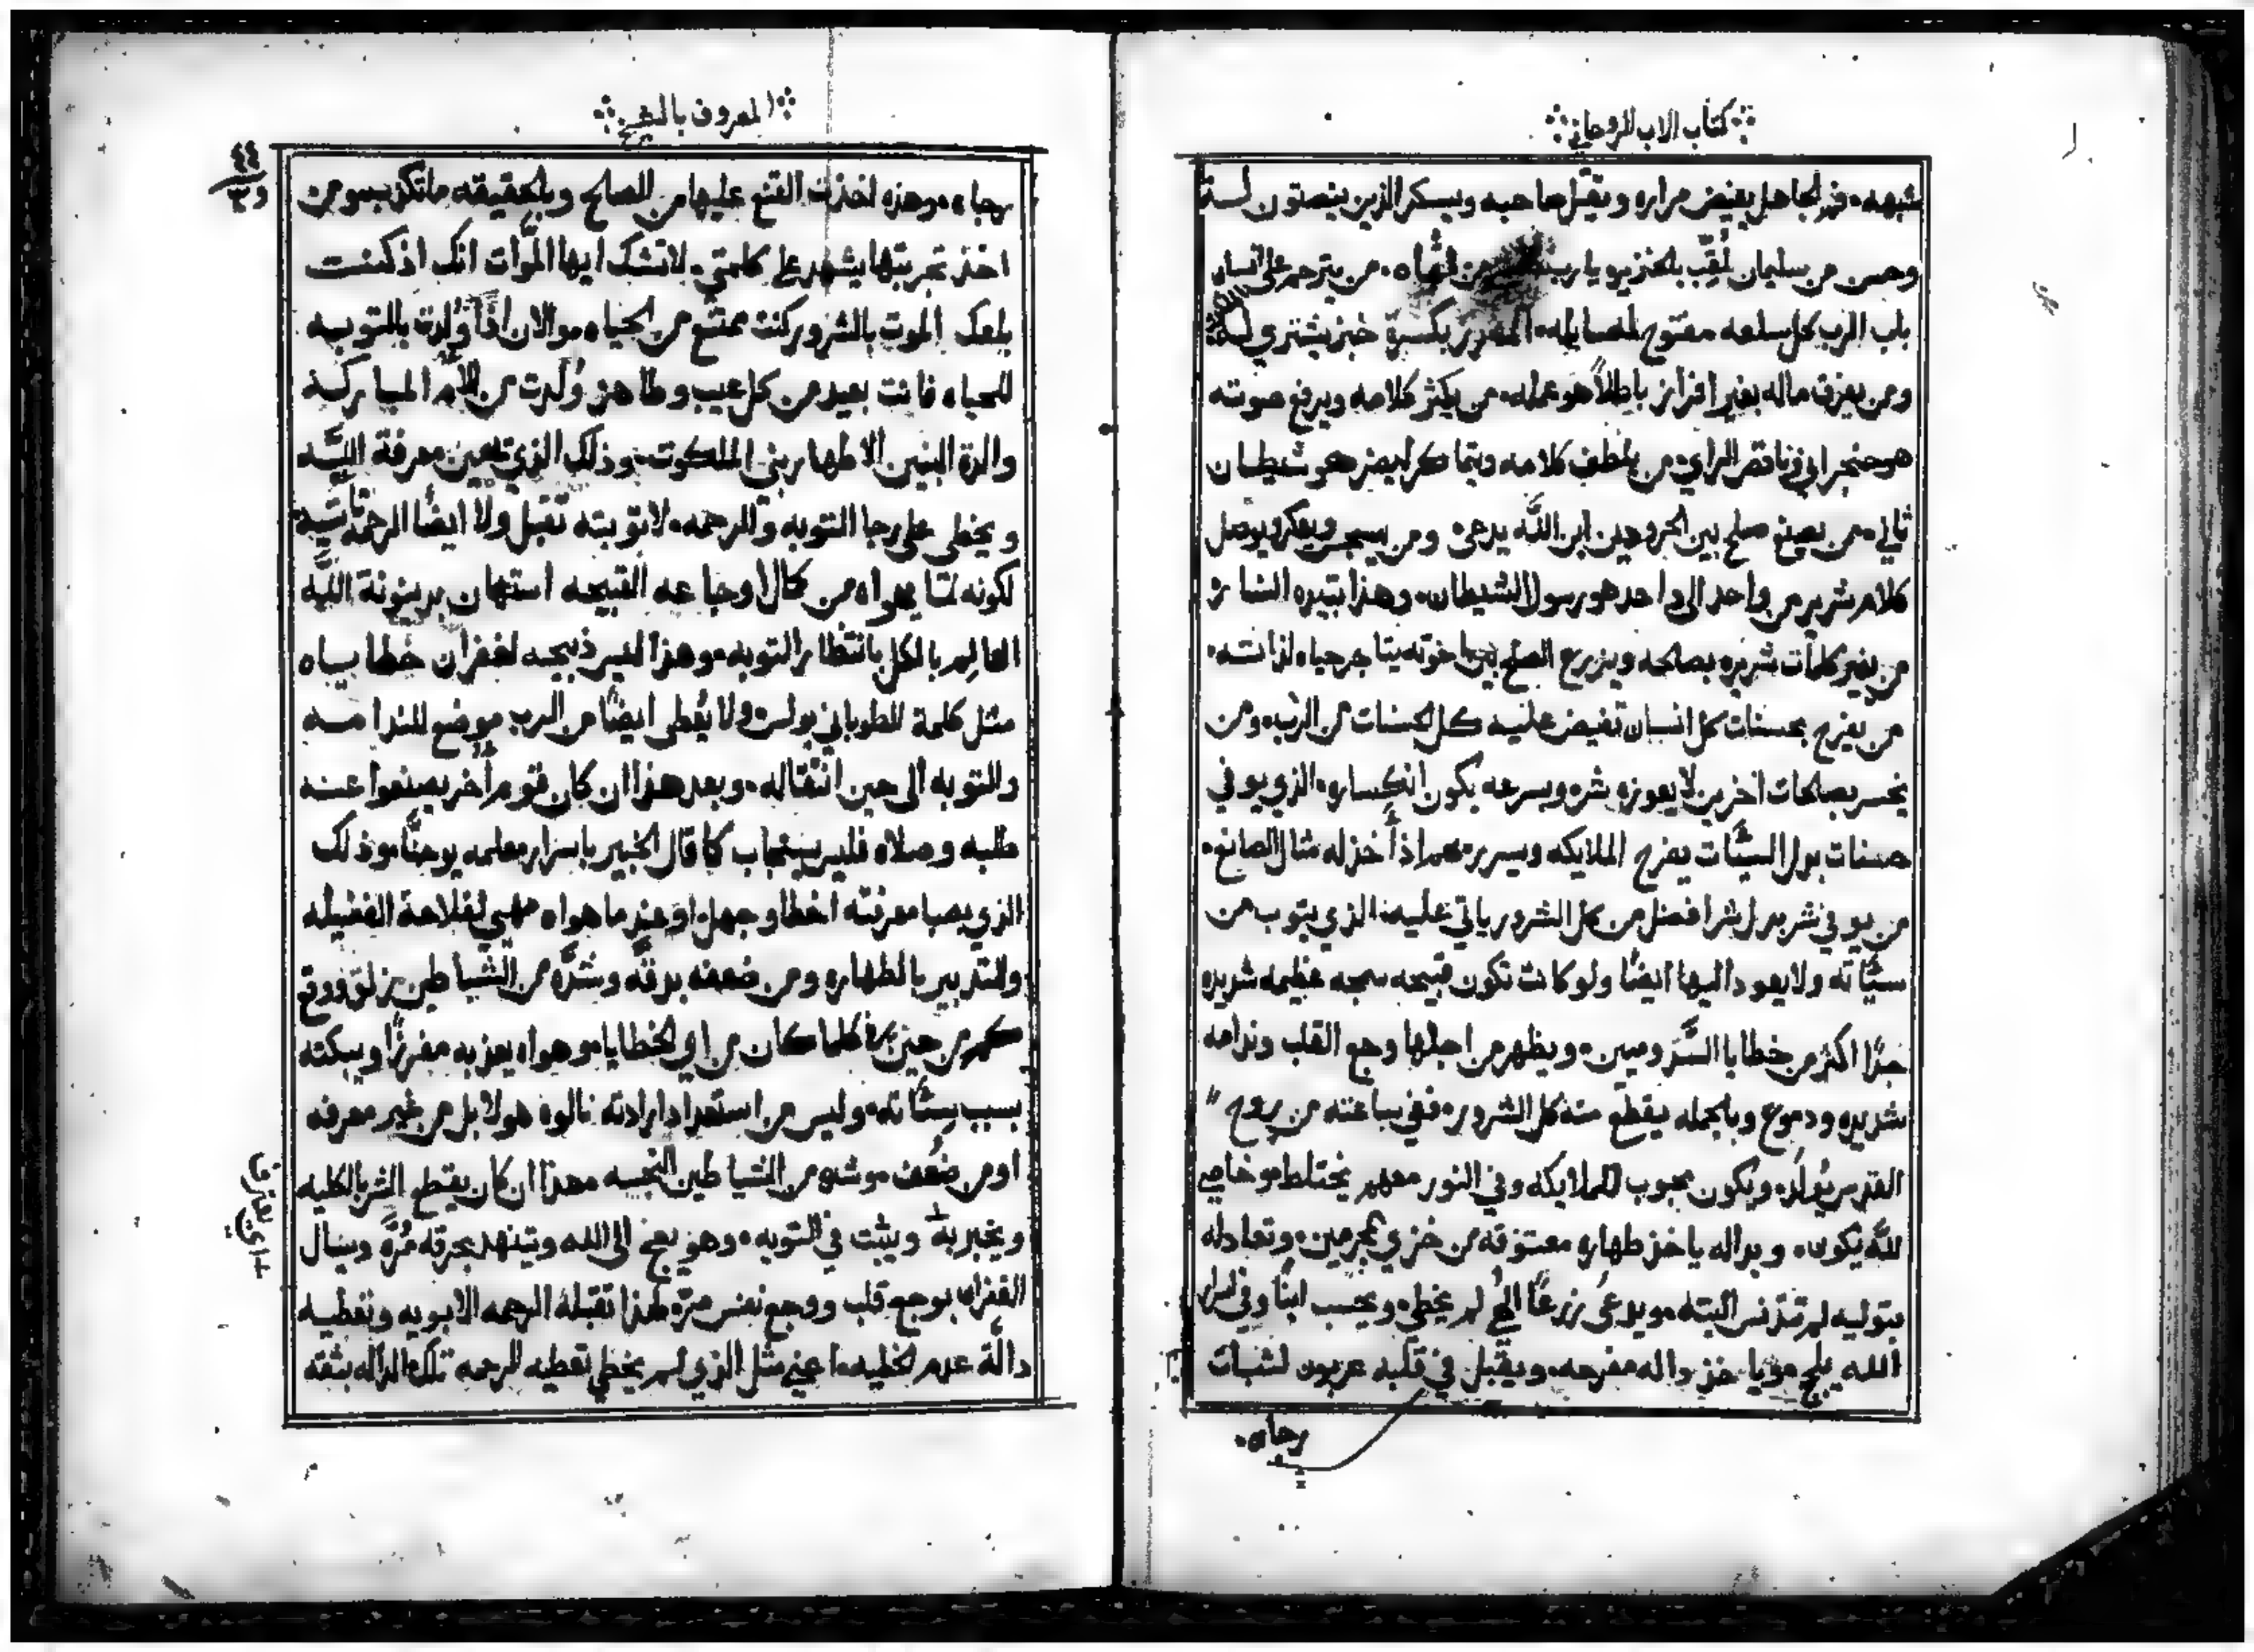 كتاب الاب الروحاني
شبهه. فم الجاهل يفيض مراره ويقتل صاحبه ويسكر الذين ينصتون لسة
وحسن من سليمان لُقِّب بالخنزير يا رب من لقاه. من يترحم على انسان
باب الرب كل ساعه مفتوح لمسايله. بكسرة خبز يشتري له
ومن يفرق ماله بغير افراز باطلاً هو عمله. من يكثر كلامه ويرفع صوته
هو حنجراني ناقص الراي. من يلطف كلامه ويتماكر ليضر هو شيطان
ثاني. من يصنع صلح بين الحروجين ابن اللَّه يدعى ومن يسجس ويعكر ويوصل
كلام شرير من واحد الى واحد هو رسول الشيطان. وهذا تبيده النار
من يغير كلمات شريره بصالحه ويزرع الصلح بين اخوته يتاجر حياه لذاته.
من يفرح بحسنات كل انسان تفيض عليه كل الحسنات من الرب. ومن
يخسر بصالحات اخرين لا يعوزه شر وبسرعه يكون انكساره. الذي يوفي
حسنات بدل السيّات يفرح الملايكه ويسررهم اذ أخذ له مثال الصانع.
من يوفي شر بدل شر افضل من كل الشرور ياتي عليه. الذي يتوب من
سيّاته ولا يعود اليها ايضًا ولو كانت تكون قبيحه سمجه عظيمه شديده
جدًا اكثر من خطايا السَّدوميين. ويظهر من اجلها وجع القلب وندامه
شديده ودموع وبالجمله يقطع منه كل الشرور. ففي ساعته من روح
القدس يُولد. ويكون محبوب للملايكه وفي النور معهم يختلط. وخاصي
للَّه يكون. وبداله ياخذ طهاره معتوقه من خزي المجرمين. وتعادله
بتوليه لم تتدنس البته. ويدعى زرعًا الهي لم يخطي. ويحسب ابنًا وفي اسرار
اللـه يلج. ويا خذ داله مفرحه. ويقبل في قلبه عربون لثبات
رجاه.
المعروف بالشيخ
٤٤
رجاه. وهذه اخذت القنع عليها من الصالح وبالحقيقه ما تكذب. ومن
اخذ تجربتها يشهد على كلمتي. لا تشك ايها المَّوات انك اذ كنت
بلعك الموت بالشرور كنت ممتنع من الحياه. والان اذًا وُلدت بالتوبه
للحياه فانت بعيد من كل عيب وطاهر وُلدت من الاُم المباركه
والدة البنين الاطهار بني الملكوت. وذلك الذي تعين معرفة السيّد
ويخطي على رجا التوبه والرحمه. لا توبته تقبل ولا ايضًا الرحمه تاتيه
لكونه لما يهواه من كمال اوجاعه القبيحه استهان بدينونة اللَّه
العالِم بالكل بانتظار التوبه. وهذا ليس ذبيحه لغفران خطاياه
مثل كلمة الطوباني بولس. ولا يُعطى ايضًا من الرب موضع للندامه
والتوبه الى حين انتقاله. وبعد هذا ان كان قوم أُخر يصنعوا عنه
طلبه وصلاه فليس يستجاب كما قال الخبير باسرار معلمه يوحنَّا. وذلك
الذي بصبا معرفته اخطا وجهل. او عندما هواه مهتي لفلاحة الفضيله
والتدبير بالطهاره ومن ضعفه بدقَّه وشدَّه من الشياطين زلق ووقع
كهم من حين كلما كان من اي الخطايا. وهواه يعذبه مفرزًا ويبكته
بسبب سيّاته. وليس من استعداد ارادته نالوه هولا بل من غير معرفه
او من ضُعف. وشده من الشياطين النجسه. هذا ان كان يقطع الشر بالكليه
ويخبر به ويثبت في التوبه. وهو يعج الى الله ويتنهد بحرقه مُرَّه ويسال
الغفران بوجع قلب ووجع نفس مرّه لهذا تقبله الرحمه الابويه وتعطيه
دالّة عدم الخطيه. اعني مثل الذي لم يخطي تعطيه الرحمه تلك الداله بثقه